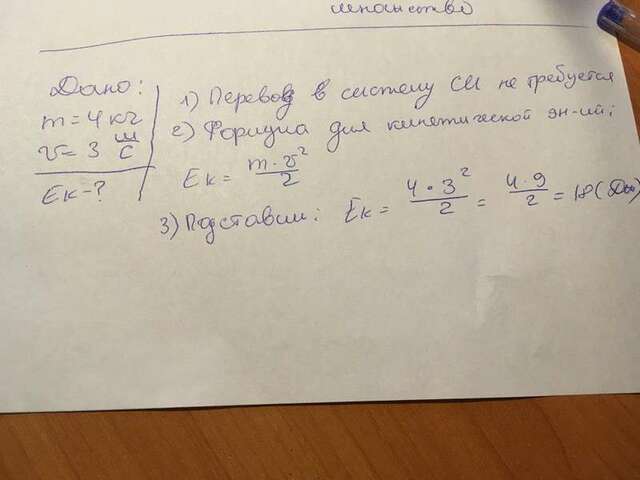 Дано:
m = 4 кг
v = 3 м/с
Ек - ?
1) Перевод в систему СИ не требуется
2) Формула для кинетической эн-ии:
Ек = m · v² / 2
3) Подставим: Ек = 4 · 3² / 2 = 4 · 9 / 2 = 18 (Дж)